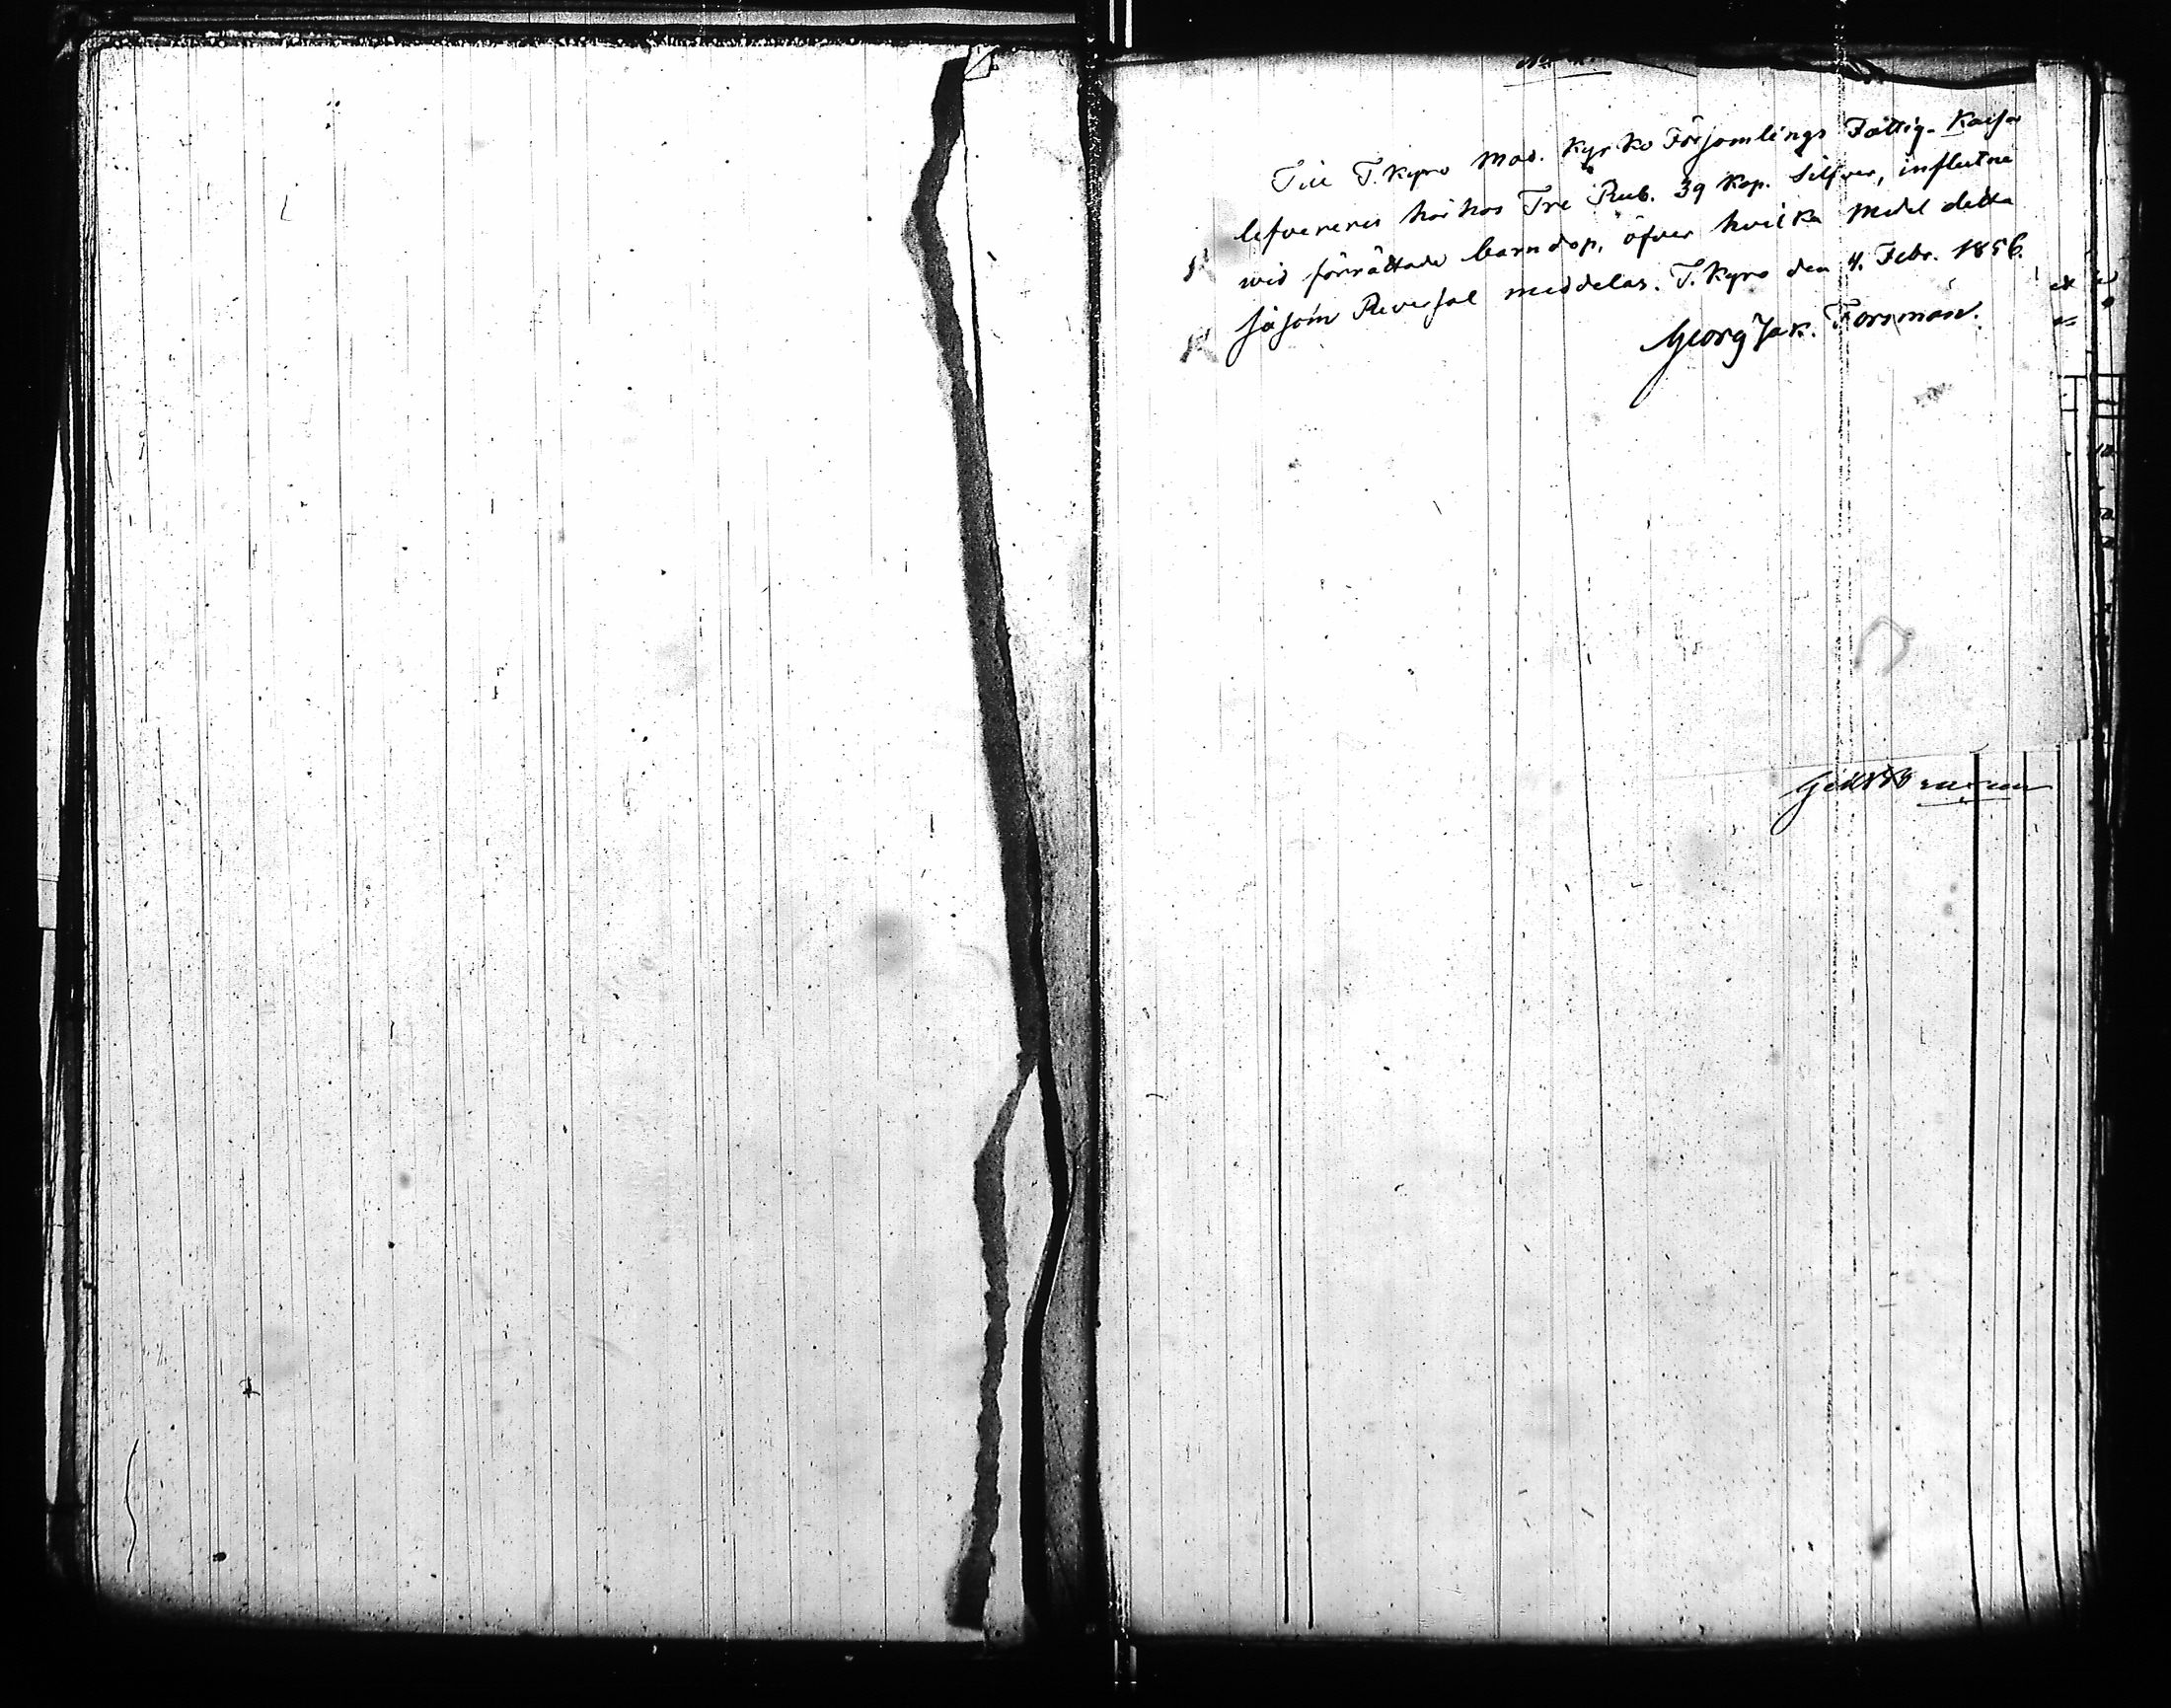 Till T. Kyro Mod. Kyrko Församlings Fattig-Kassa
lefvereres här hos Tre Rub. 39 Kop. Silfver, influtne
wid förrättade barndop, öfver hvilka medel detta
såsom Reversal meddelas. T. Kyro den 4. Febr. 1856.
Georg Jak. Forsman.